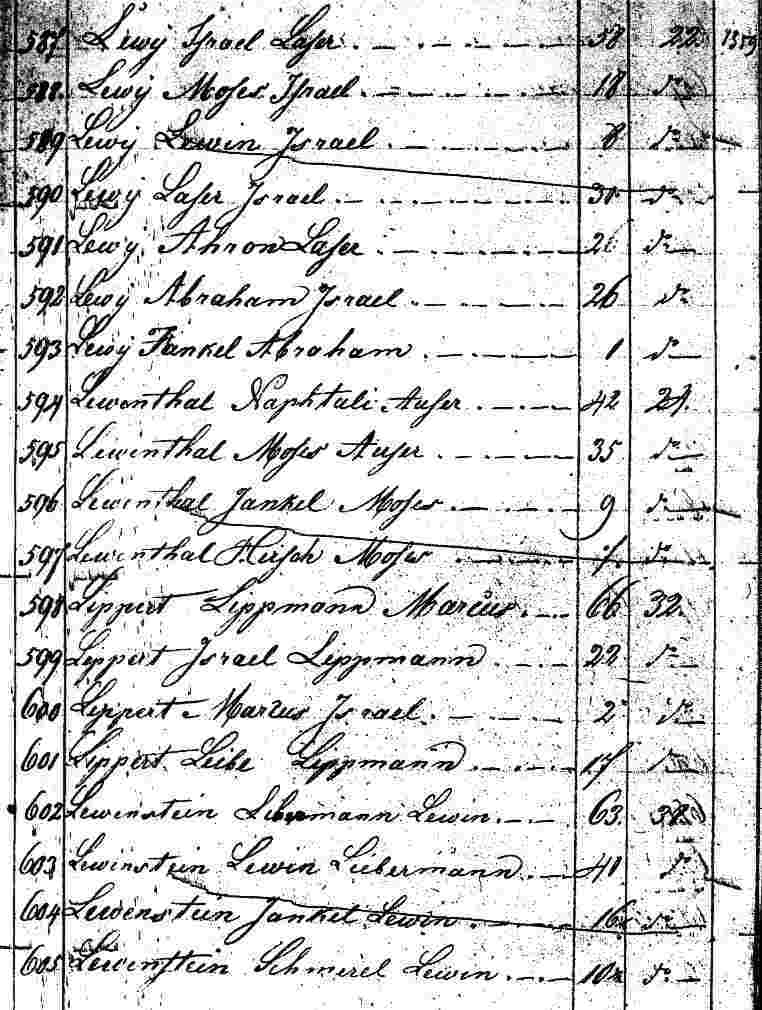 587 Lewy Israel Laser 58 22 1359
588. Lewy Moses Israel 18 do
589 Lewy Lewin Israel 8 do
590 Lewy Laser Israel 30 do
591 Lewy Ahron Laser 26 do
592 Lewy Abraham Israel 26 do
593 Lewy Jankel Abraham 1 do
594 Lewenthal Naphtali Auser 42 24.
595 Lewinthal Moses Auser 35 do
596 Lewinthal Jankel Moses 9 do
597 Lewenthal Hirsch Moses 7 do
598 Lippert Lippmann Marcus 66 32.
599 Lippert Israel Lippmann 22 do
600 Lippert Marcus Israel 2 do
601 Lippert Leibe Lippmann 17 do
602 Lewenstein Libermann Lewin 63 38
603 Lewinstein Lewin Liebermann 40 do
604 Lewenstein Jankel Lewin 16 do
605 Lewenstein Schmerel Lewin 10 do